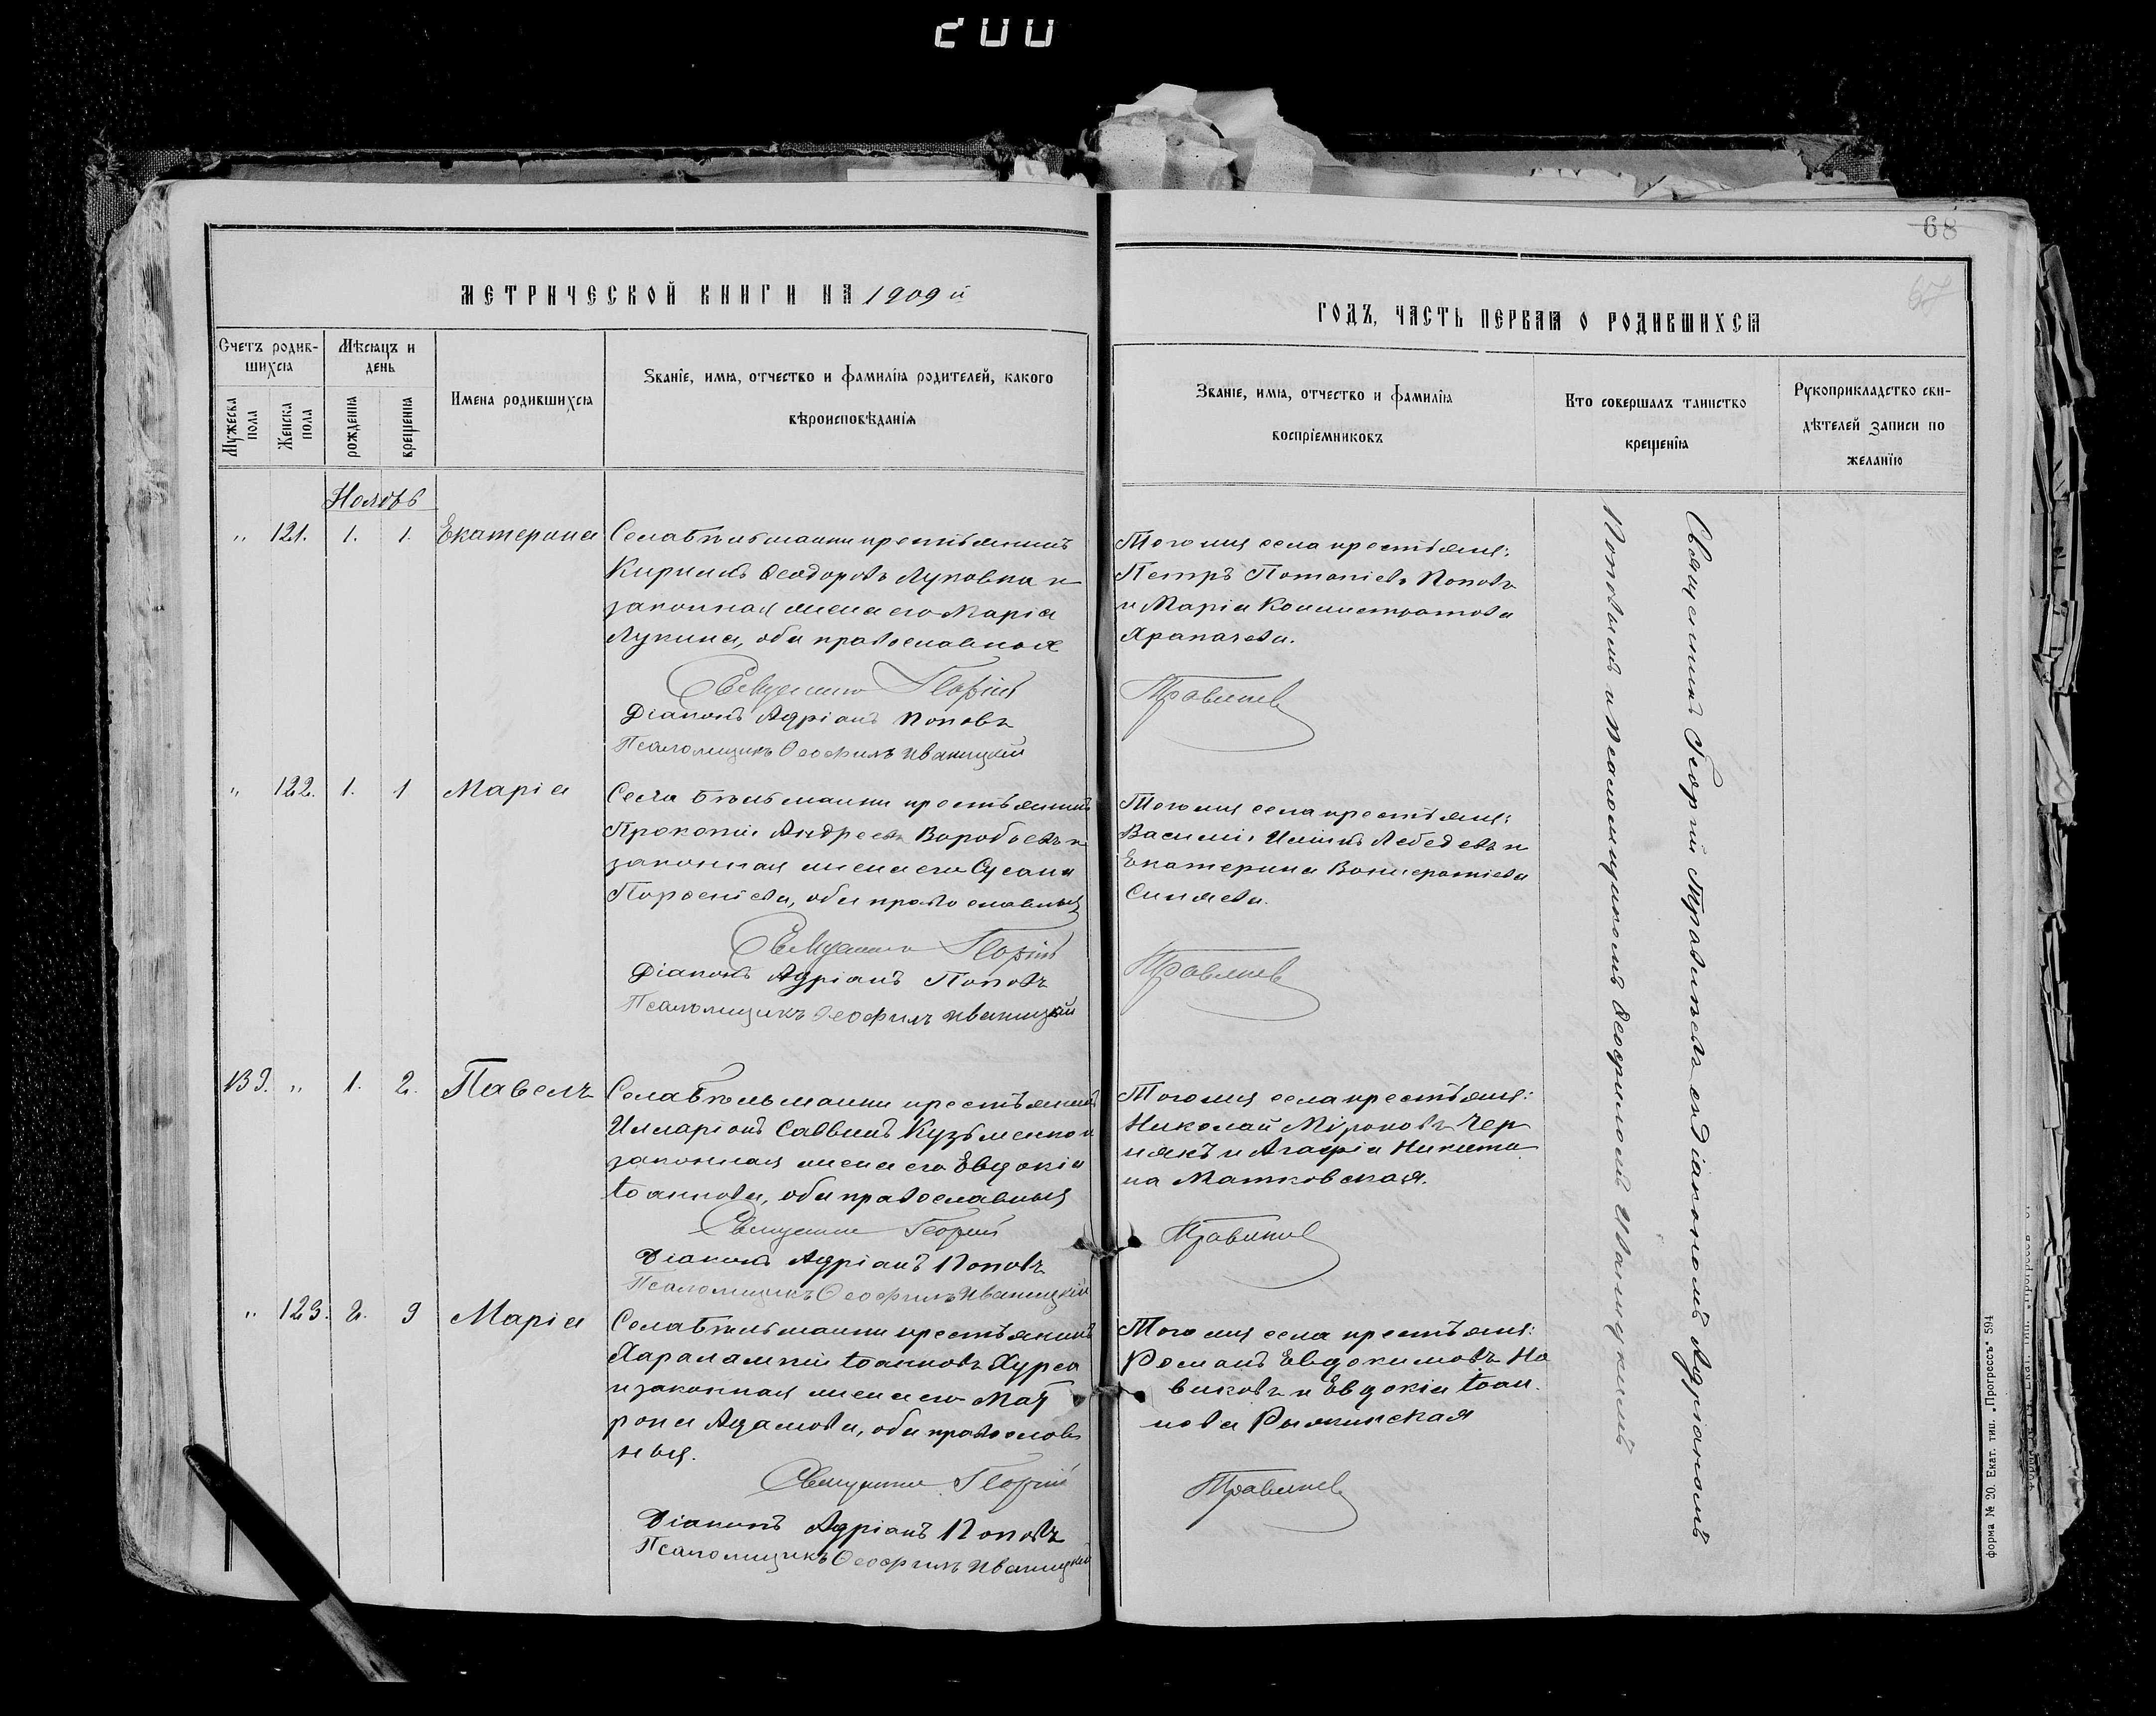 200
68
67
МЕТРИЧЕСКОЙ КНИГИ НА 1909 й
ГОДЪ, ЧАСТЬ ПЕРВАЯ О РОДИВШИХСЯ
Счетъ родив-
шихся
Мѣсяцъ и
день
Мужеска
пола
Женска
пола
рожденія
крещенія
Имена родившихся
Званіе, имя, отчество и фамилія родителей, какого
вѣроисповѣданія
Званіе, имя, отчество и фамилія
воспріемниковъ
Кто совершалъ таинство
крещенія
Рукоприкладство сви-
дѣтелей записи по
желанію
Ноябрь
" 121. 1. 1. Екатерина
Села Бѣльманки крестьянинъ
Кириллъ Ѳеодоровъ Луковка и
законная жена его Марія
Лукина, оба православные
Священникъ Георгій
Діаконъ Адріанъ Поповъ
Псаломщикъ Ѳеофилъ Иваницкій
Того же села крестьяне:
Петръ Потапіевъ Поповъ
и Марія Каллистратова
Арапачева.
Правиков
" 122. 1. 1 Марія
Села Бѣльманки крестьянинъ
Прокопій Андреевъ Воробьевъ и
законная жена его Сусана
, оба православныя
Священникъ Георгій
Діаконъ Адріанъ Поповъ
Псаломщикъ Ѳеофилъ Иваницкій
Того же села крестьяне:
Василій Иліинъ Лебедевъ и
Екатерина
Синяева.
139. " 1. 2. Павелъ
Села Бѣльманки крестьянинъ
Илларіонъ Саввинъ Кузьменко и
законная жена его Евдокія
Іоаннова, оба православныя
Священникъ Георгій
Діаконъ Адріанъ Поповъ
Псаломщикъ Ѳеофилъ Иваницкій
Того же села крестьяне:
Николай Мѵроновъ Чер
някъ и Агафія Никити
на Матковская.
" 123. 2. 9 Марія
Села Бѣльманки крестьянинъ
Харалампій Іоанновъ Хурса
и законная жена его Мат
рона Адамова, оба православ
ныя.
Священникъ Георгій
Діаконъ Адріанъ Поповъ
Псаломщикъ Ѳеофилъ Иваницкій
Того же села крестьяне:
Романъ Евдокимовъ Но
виковъ и Евдокія Іоан
нова
Священникъ Георгій съ діакономъ Адріаномъ
Поповымъ и псаломщикомъ Ѳеофиломъ Иваницкимъ
форма № 20. Екат. тип. „Прогрессъ" 594